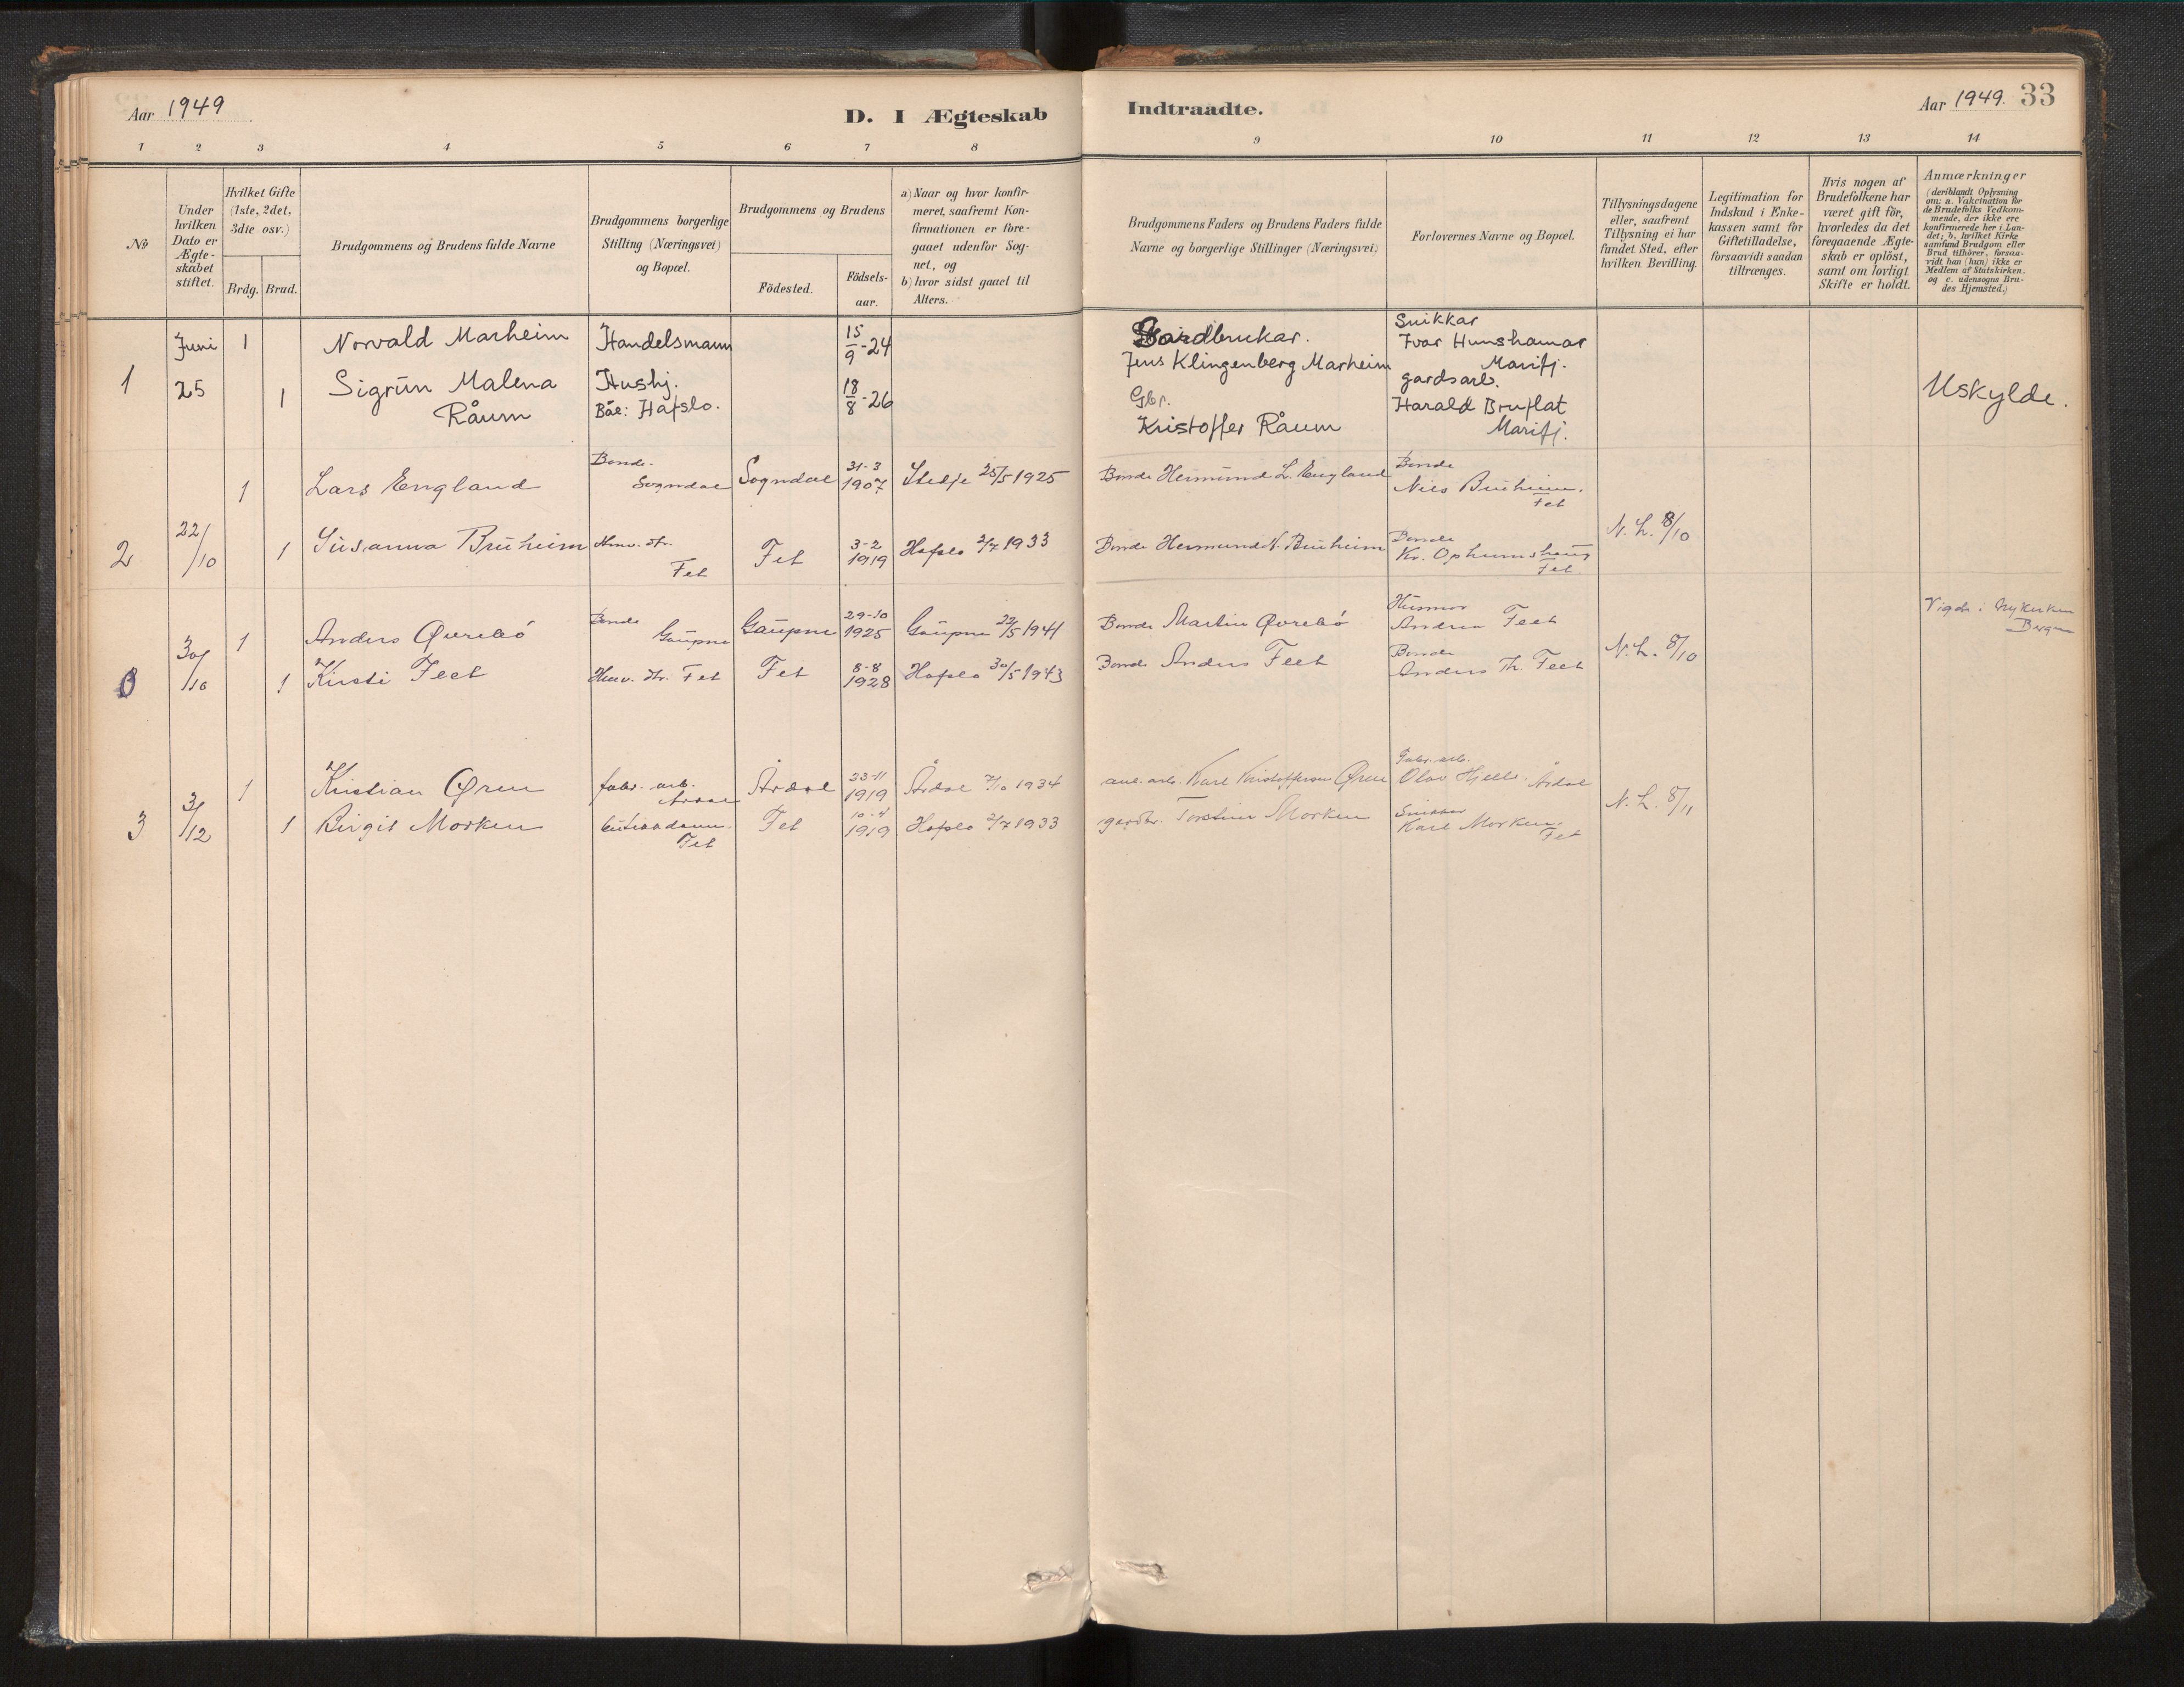 Aar 1949
D. I Ægteskab Indtraadte.
Aar 1949. 33
1 2 3 4 5 6 7 8 9 10 11 12 13 14
No
Under hvilken Dato er Ægte-skabet stiftet.
Hvilket Gifte (1ste, 2det, 3die osv.)
Brdg. Brud.
Brudgommens og Brudens fulde Navne
Brudgommens borgerlige Stilling (Næringsvei) og Bopæl.
Brudgommens og Brudens
Födested.
Födsels-aar.
a) Naar og hvor konfir-
meret, saafremt Kon-
firmationen er fore-
gaaet udenfor Sog-
net, og
b) hvor sidst gaaet til
Alters.
Brudgommens Faders og Brudens Faders fulde
Navne og borgerlige Stillinger (Næringsvei)
Forlovernes Navne og Bopæl.
Tillysningsdagene
eller, saafremt
Tillysning ei har
fundet Sted, efter
hvilken Bevilling.
Legitimation for
Indskud i Enke-
kassen samt for
Giftetilladelse,
forsaavidt saadan
tiltrænges.
Hvis nogen af
Brudefolkene har
været gift för,
hvorledes da det
foregaaende Ægte-
skab er oplöst,
samt om lovligt
Skifte er holdt.
Anmærkninger
(deriblandt Oplysning
om: a. Vakcination for
de Brudefolks Vedkom-
mende, der ikke ere
konfirmerede her i Lan-
det; b. hvilket Kirke
samfund Brudgom eller
Brud tilhörer, forsaa-
vidt han (hun) ikke er
Medlem af Statskirken,
og c. udensogns Bru-
des Hjemsted.)
1 Juni 25
1 Norvald Marheim Handelsmann 15/9-24
Gardbrukar.
Jens Klingenberg Marheim
Snikkar
Ivar Hunshamar
Marifj.
1 Sigrün Malena
Råum
Hushj.
Båe: Hafslo.
18/8-26
Gbr.
Kristoffer Råum
gardsarb.
Harald Bruflat
Marifj.
Uskylde.
2 22/10
1 Lars England
Bonde.
Sogndal
Sogndal
31-3
1907
Stedje 25/5 1925
Bonde Hermünd L. England
Bonde
Nils Brüheim.
Fet
1 Süsanna Brüheim
Fet
Fet
3-2
1919
Hafslo 2/7 1933
Bonde Hermund N. Brüheim
Bonde
Kr. Ophumshaug
Fet
N. L. 8/10
0 30/10
1 Anders Øvrebö
Bonde
Gaüpne
Gaüpne
29-10
1925
Gaüpne 22/5 1941
Bonde Martin Øvrebö
Husmor
Andrea Feet
Vigde i Nykirken
Bergen
1 Kirsti Feet
Fet
Fet
8-8
1928
Hafslo 30/5 1943
Bonde Anders Feet
Bonde
Anders Th. Feet
N. L. 8/10
3 3/12
1 Kristian Øren
fabr. arb.
Årdal
Årdal
23-11
1919
Årdal 7/10 1934
anl. arb. Karl Kristoffersen Øren
Fabr. arb.
Olav Hjelle. Årdal
1 Birgit Morken
Fet
Fet
10-4
1919
Hafslo 2/7 1933
gardbr. Torstein Morken
Snikkar
Karl Morken.
Fet
N. L. 8/11